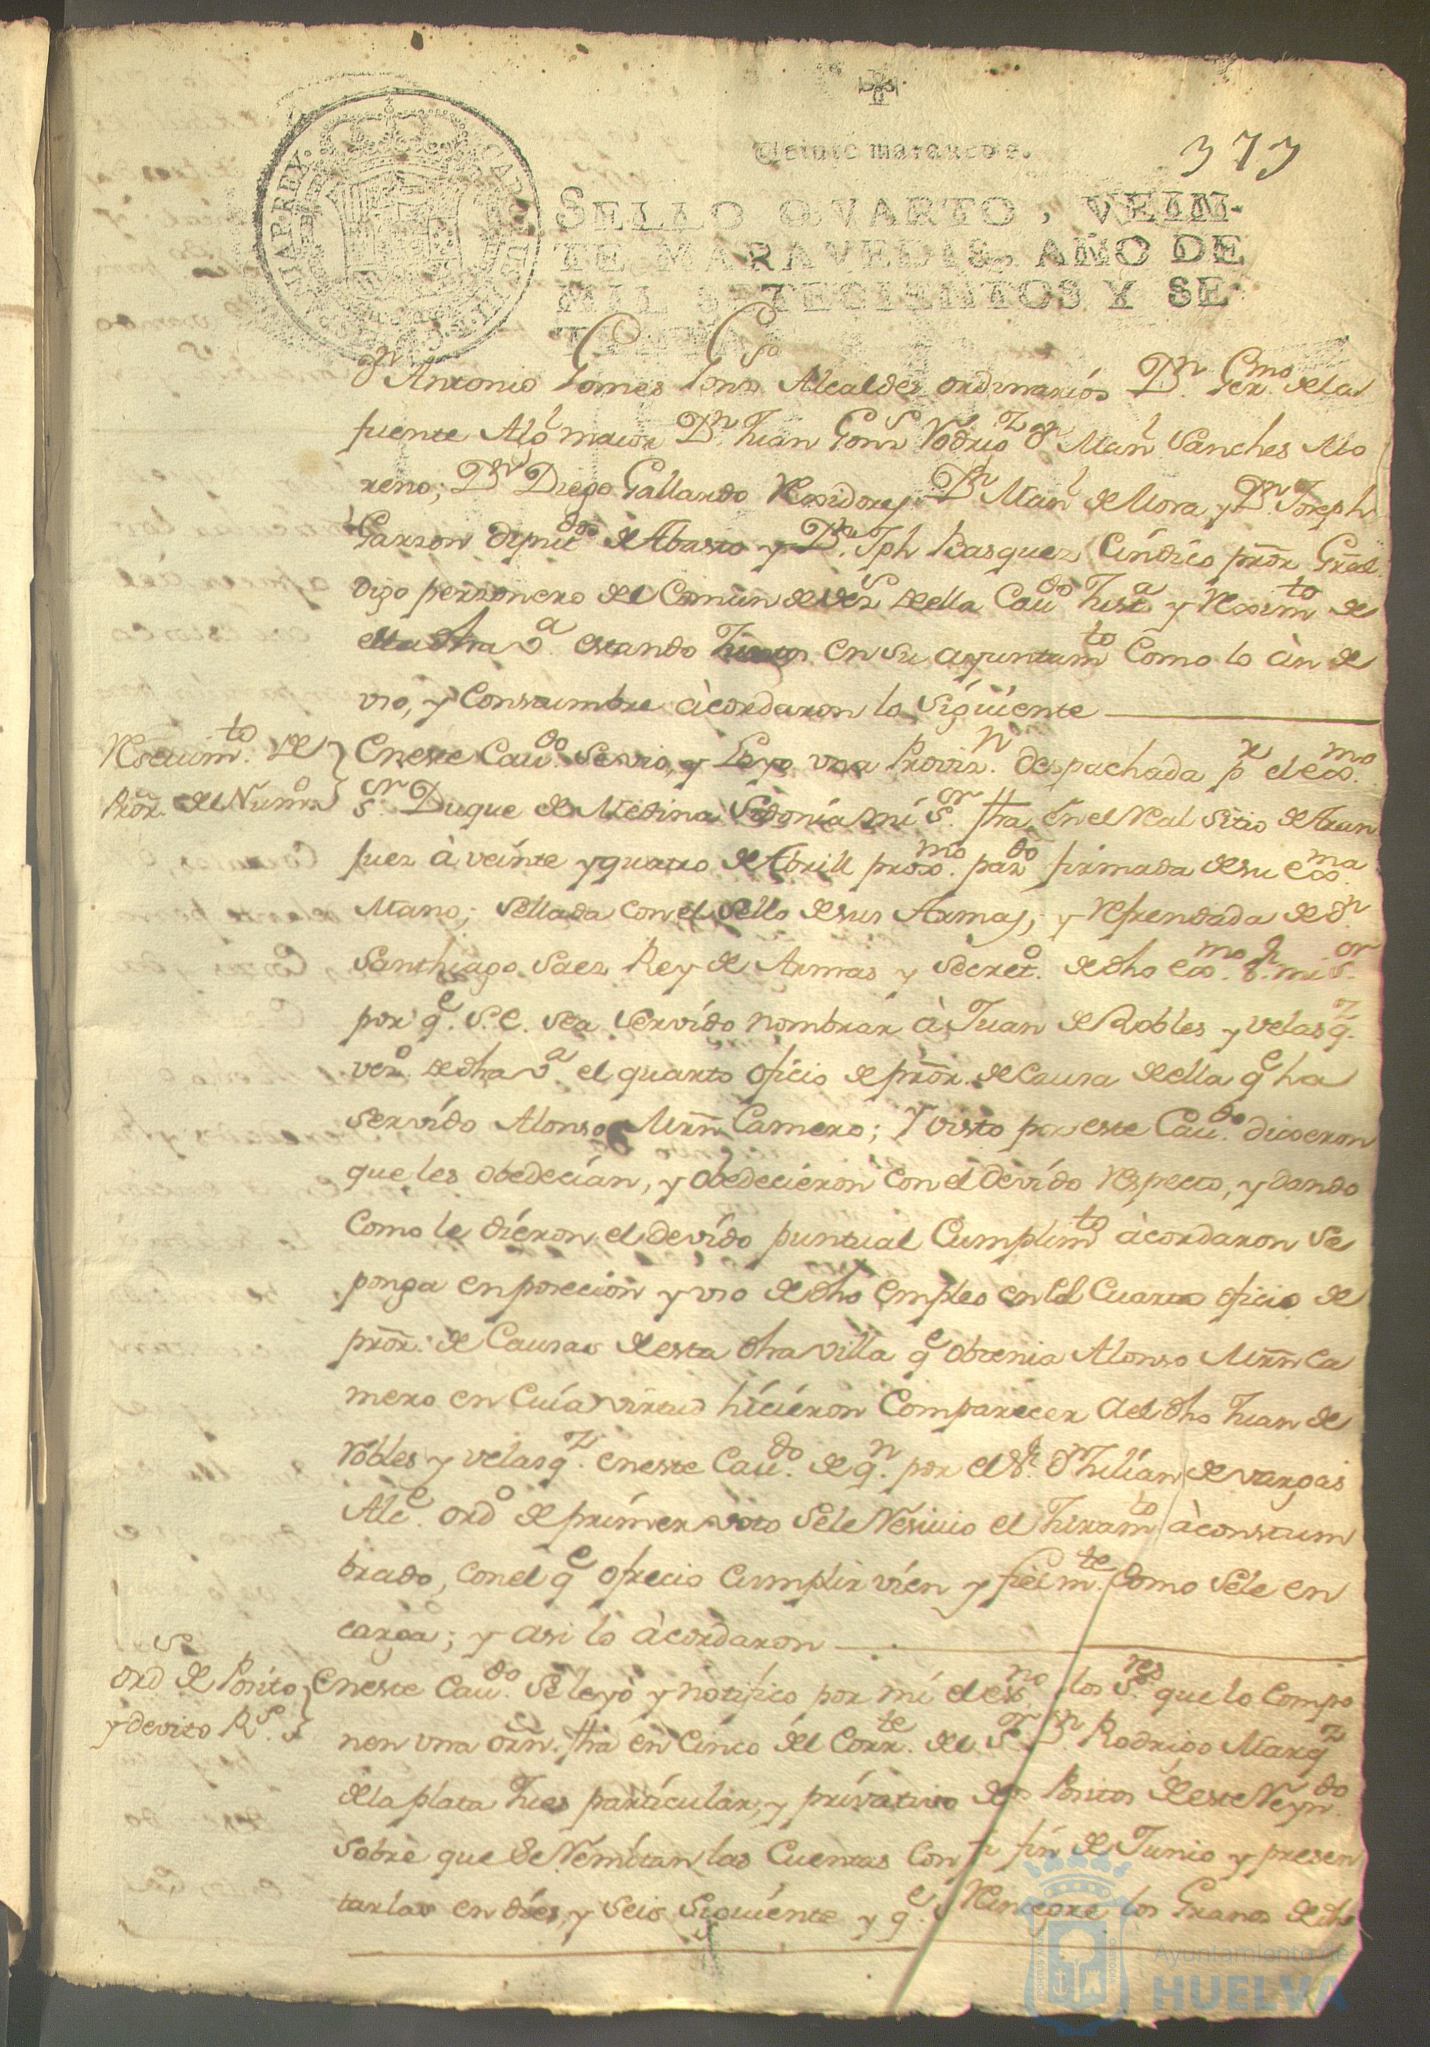 Veinte maravedis.
377
SELLO QVARTO, VEIN-
TE MARAVEDIS, AÑO DE
MIL SETECIENTOS Y SE-
Dn Antonio Gomes Gonso Alcaldes ordinarios Dn. Germo. de la
fuente Algl maior Dn. Juan Gons Rodrigz Dn Manl Sanches Mo
reno; Dn Diego Gallardo Rexidores Dn Manl de Mora, y Dn. Joseph
Garzon diputdos de Abasto y Dn. Jph Basquez Cíndico prōr Grāl
digo personero del Comun de vezs de ella Cavdo Justa y Reximto de
esta dha Va. estando Juntos en Su ayuntamto Como lo àn de
vso, y Constumbre àcordaron lo Sigüiente
Reseuimto. de
Prōr. del Númro
En este Cavdo. Se vio, y Leyo vna Provizn. despachada pr el exmo.
Sr. Duque de Medina Sidonia mi Sr. fha en el Real Sitio de Aran
juez à veinte y quatro de Abrill proxmo. pasdo firmada de su exma.
Mano; Sellada con el Sello de sus Armas; y Refrendada de Dn.
Santhiago Saez Rey de Armas y Secreto. de dho exmo. Sr. mi Sor.
por qe. S. E. sea Servído nombrar à Juan de Robles y velasqz.
vezo. de dha Va el quarto oficio de prōr. de Causa de ella qe ha
servído Alonso Mrñ Camero; Y visto por este Cavdo. dixeron
que les obedecían, y obedecieron con el devído respecto, y dando
Como le dieron el devído puntual Cumplimto àcordaron se
ponga en posecion y vso de dho empleo en el Cuarto oficio de
prōr. de Causas de esta dha villa qe obtenia Alonso Mrñ Ca
mero en Cuía virtud hicieron Comparecer a el dho Juan de
Robles y velasqz. en este Cavdo. de qn. por el Sr. Dn Julían de vargas
Alce. ordo de prímer voto Se le Resiuio el Juramto àconstum
brado, con el qe ofrecio Cumplir víen y fielmte. Como Se le en
carga; y asi lo àcordaron
Ords de Posito
y devito Rs.
En este Cavdo. Se leyó y notífico por mí el esno. a los Sres. que lo Compo
nen vna orñ. fha en Cinco del Corrte. del Sr. Dn. Rodrigo Marqz
de la plata Jues partícular, y prívativo de Positos de este Reyndo.
Sobre que Se Remitan las Cuentas Con fin de Junio y presen
tarlas en diés, y Seis Siguiente y qe. Reintegre los Granos de dho
Ayuntamiento de
HUELVA